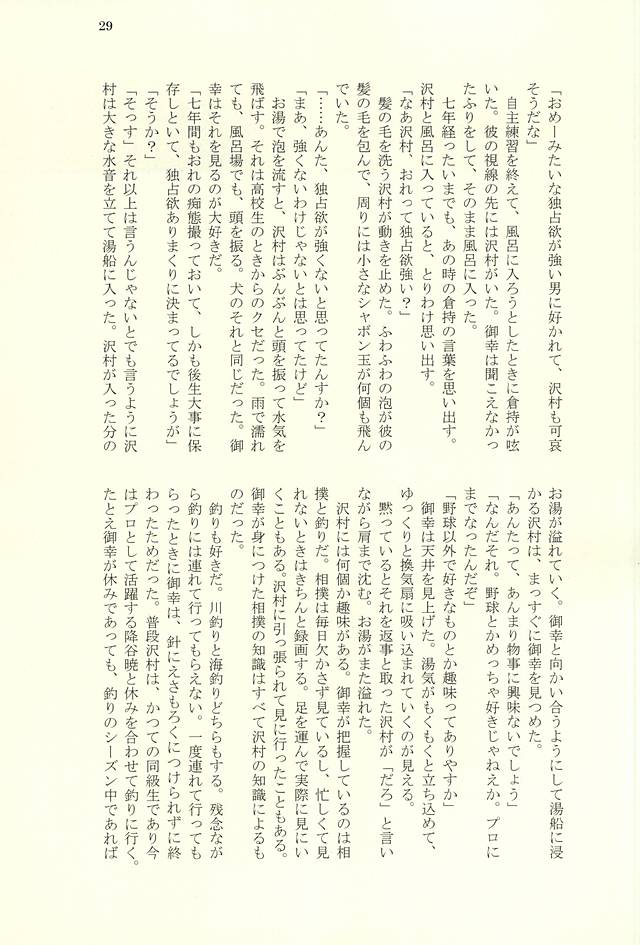 29
「おめーみたいな独占欲が強い男に好かれて、沢村も可哀
そうだな」
　自主練習を終えて、風呂に入ろうとしたときに倉持が呟
いた。彼の視線の先には沢村がいた。御幸は聞こえなかっ
たふりをして、そのまま風呂に入った。
　七年経ったいまでも、あの時の倉持の言葉を思い出す。
沢村と風呂に入っていると、とりわけ思い出す。
「なあ沢村、おれって独占欲強い？」
　髪の毛を洗う沢村が動きを止めた。ふわふわの泡が彼の
髪の毛を包んで、周りには小さなシャボン玉が何個も飛ん
でいた。
「……あんた、独占欲が強くないと思ってたんすか？」
「まあ、強くないわけじゃないとは思ってたけど」
　お湯で泡を流すと、沢村はぶんぶんと頭を振って水気を
飛ばす。それは高校生のときからのクセだった。雨で濡れ
ても、風呂場でも、頭を振る。犬のそれと同じだった。御
幸はそれを見るのが大好きだ。
「七年間もおれの痴態撮っておいて、しかも後生大事に保
存しといて、独占欲ありまくりに決まってるでしょうが」
「そうか？」
「そっす」それ以上は言うんじゃないとでも言うように沢
村は大きな水音を立てて湯船に入った。沢村が入った分の
お湯が溢れていく。御幸と向かい合うようにして湯船に浸
かる沢村は、まっすぐに御幸を見つめた。
「あんたって、あんまり物事に興味ないでしょう」
「なんだそれ。野球とかめっちゃ好きじゃねえか。プロに
までなったんだぞ」
「野球以外で好きなものとか趣味ってありやすか」
　御幸は天井を見上げた。湯気がもくもくと立ち込めて、
ゆっくりと換気扇に吸い込まれていくのが見える。
　黙っているとそれを返事と取った沢村が「だろ」と言い
ながら肩まで沈む。お湯がまた溢れた。
　沢村には何個か趣味がある。御幸が把握しているのは相
撲と釣りだ。相撲は毎日欠かさず見ているし、忙しくて見
れないときはきちんと録画する。足を運んで実際に見にい
くこともある。沢村に引っ張られて見に行ったこともある。
御幸が身につけた相撲の知識はすべて沢村の知識によるも
のだった。
　釣りも好きだ。川釣りと海釣りどちらもする。残念なが
ら釣りには連れて行ってもらえない。一度連れて行っても
らったときに御幸は、針にえさもろくにつけられずに終
わったためだった。普段沢村は、かつての同級生であり今
はプロとして活躍する降谷暁と休みを合わせて釣りに行く。
たとえ御幸が休みであっても、釣りのシーズン中であれば